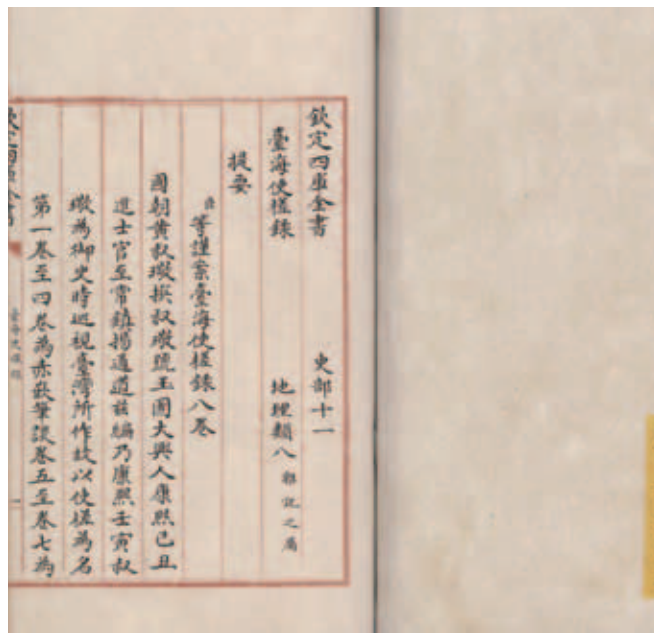 欽定四庫全書 史部十一
臺海使槎錄 地理類八 雜記之屬
提要
臣等謹案臺海使槎錄八卷
國朝黃叔璥撰叔璥號玉圃大興人康熙己丑
進士官至常鎮揚通道茲編乃康熙壬寅叔
璥為御史時巡視臺灣所作故以使槎為名
第一卷至四卷為赤嵌筆談卷五至卷七為
欽定四庫全書 臺海使槎錄 一